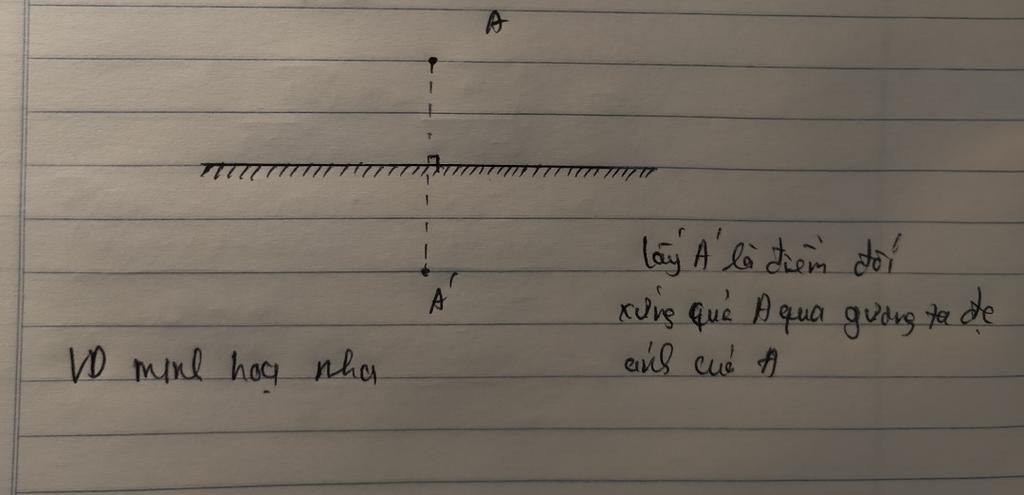 A
A'
lấy A' là điểm đối
xứng quả A qua gương ta đc
ảnh của A
VD minh hoạ nha